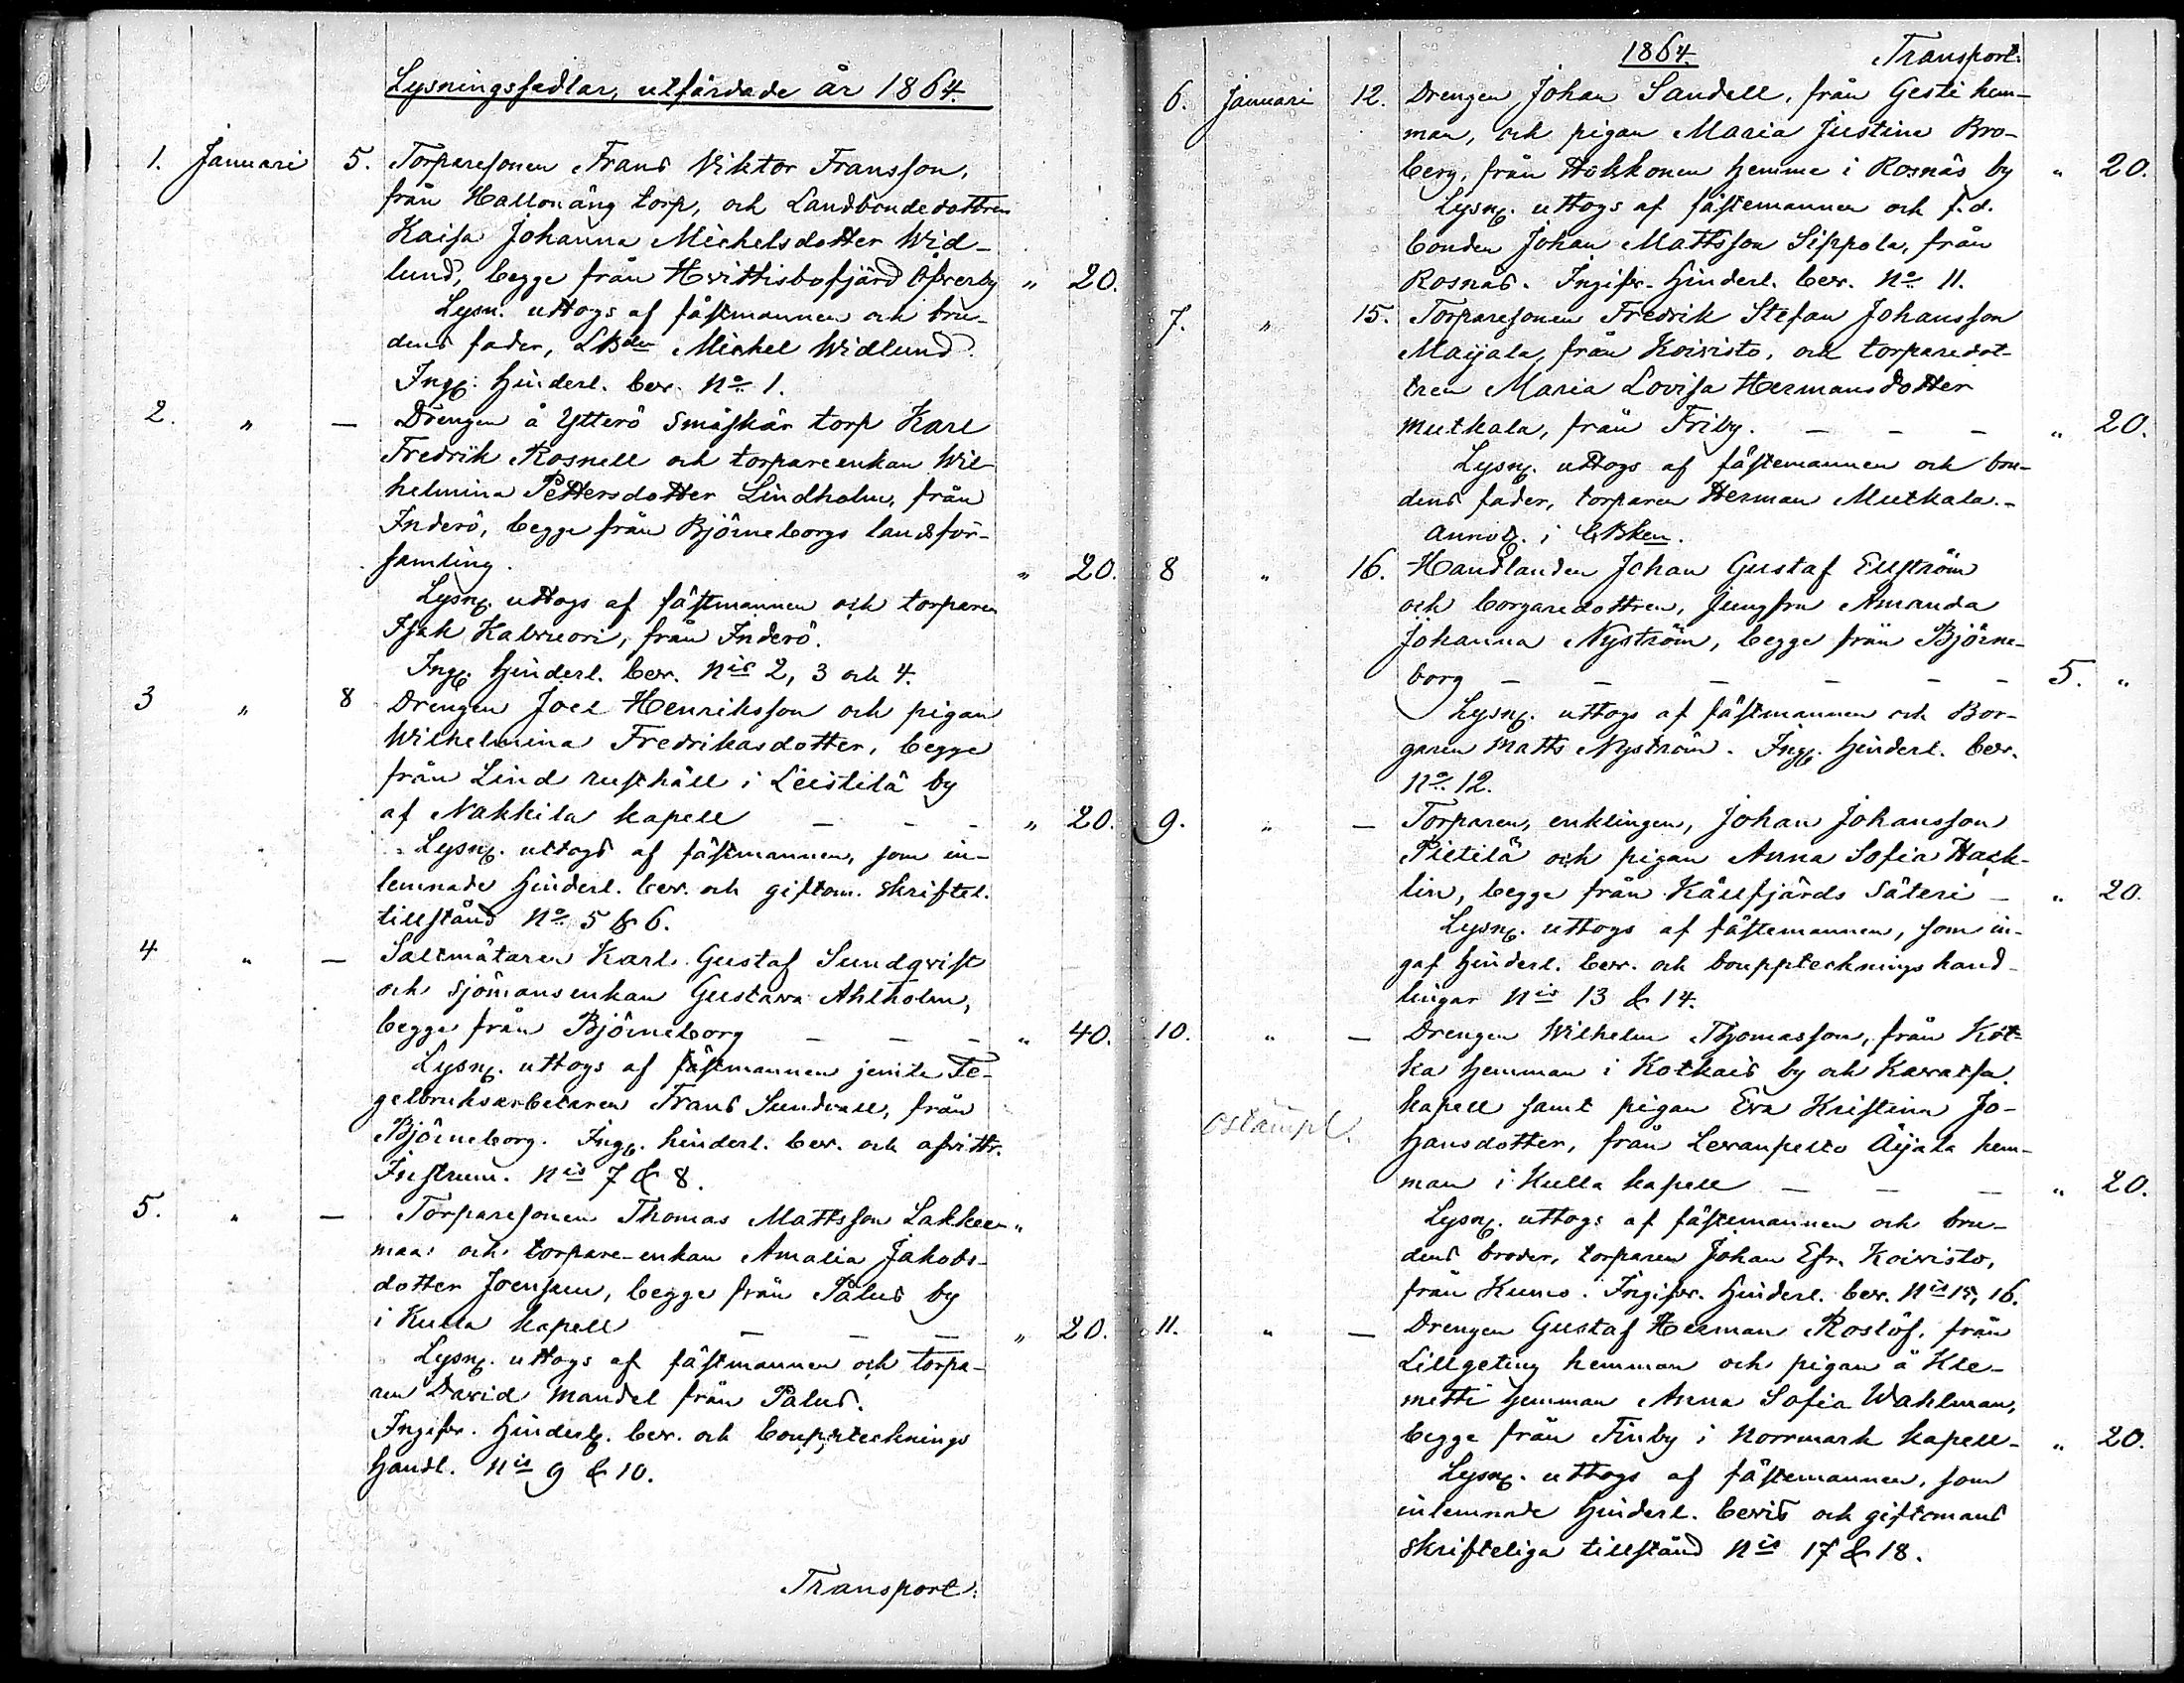 Lysningssedlar, utfärdade år 1864.
1. Januari 5. Torparesonen Frans Viktor Fransson,
från Hallonäng torp, och Landbondedottren
Kaisa Johanna Michelsdotter Wid-
lund, begge från Hvittisbofjärd Öfverby " 20.
Lysn. uttogs af fästmannen och bru-
dens fader, LBden Michel Widlund.
Ingg. hinderl. bev. No 1.
2. " — Drengen å Ytterö Småskär torp Karl
Fredrik Rosnell och torpareenkan Wil-
helmina Pettersdotter Lindholm, från
Inderö, begge från Björneborgs landsför-
samling. " 20.
Lysng. uttogs af fästmannen och torparen
Isak Kalvuori, från Inderö.
Ingg. hinderl. bev. Nis 2, 3 och 4.
3 " 8 Drengen Joel Henriksson och pigan
Wilhelmina Fredrikasdotter, begge
från Lind rusthåll i Leistilä by
af Nakkila kapell — — - " 20.
Lysng. uttogs af fästmannen, som in-
lemnade hinderl. bev. och giftom. skriftel.
tillstånd No 5 & 6.
4 " — Saltmätaren Karl Gustaf Sundqvist
och sjömansenkan Gustava Ahlholm,
begge från Björneborg — — - " 40.
Lysng. uttogs af fästmannen jemte Te-
gelbruksarbetaren Frans Sundvall, från
Björneborg. Ingg. hinderl. bev. och afvittr.
Instrum. Nis 7 & 8.
5. " — Torparesonen Thomas Mattsson Lakkeen-
maa och torpare-enkan Amalia Jakobs-
dotter Joensuu, begge från Palus by
i Kulla kapell — — — " 20.
Lysng. uttogs af fästmannen och torpa-
ren David Mandel från Palus.
Ingifv. hinderlg. bev. och bouppteknings
handl. Nis 9 & 10.
Transport:
1864. Transport:
6. Januari 12. Drengen Johan Sandell, från Gesti hem-
man, och pigan Maria Justina Bro-
berg, från Hokkonen hemme i Rosnäs by " 20.
Lysng. uttogs af fästemannen och f.d.
bonden Johan Mattsson Sippola, från
Rosnäs. Ingifv. hinderl. bev. No 11.
7. " 15. Torparesonen Fredrik Stefan Johansson
Maijala, från Koivisto, och torparedot-
tren Maria Lovisa Hermansdotter
Mutkala, från Friby. — — — " 20.
Lysng. uttogs af fästemannen och bru-
dens fader, torparen Herman Mutkala.-
Annotg. i LBken.
8 " 16. Handlanden Johan Gustaf Ellström
och borgaredottren, Jungfru Amanda
Johanna Nyström, begge från Björne-
borg — — — — — — 5. "
Lysng. uttogs af fästmannen och Bor-
garen Matts Nyström. Ingg. hinderl. bev.
No 12.
9. " — Torparen, enklingen, Johan Johansson
Pietilä och pigan Anna Sofia Hack-
lin, begge från Kållfjärds Säteri — " 20.
Lysng. uttogs af fästemannen, som in-
gaf hinderl. bev. och boupptecknings hand-
lingar Nis 13 & 14.
10. " — Drengen Wilhelm Thomasson, från Kot-
ka hemman i Kotkais by och Kavatsa
kapell samt pigan Eva Kristina Jo-
ostämpl.
hansdotter, från Levanpelto Äijälä hem-
man i Kulla kapell — — — " 20.
Lysng. uttogs af fästemannen och bru-
dens broder, torparen Johan Efr. Koivisto,
från Kumo. Ingifv. hinderl. bev. Nis 15, 16.
11. " — Drengen Gustaf Herman Roslöf, från
Lillgeting hemman och pigan å Kle-
metti hemman Anna Sofia Wahlman,
begge från Finby i Norrmark kapell- " 20.
Lysng. uttogs af fästemannen, som
inlemnade hinderl. bevis och giftomans
skrifteliga tillstånd Nis 17 & 18.